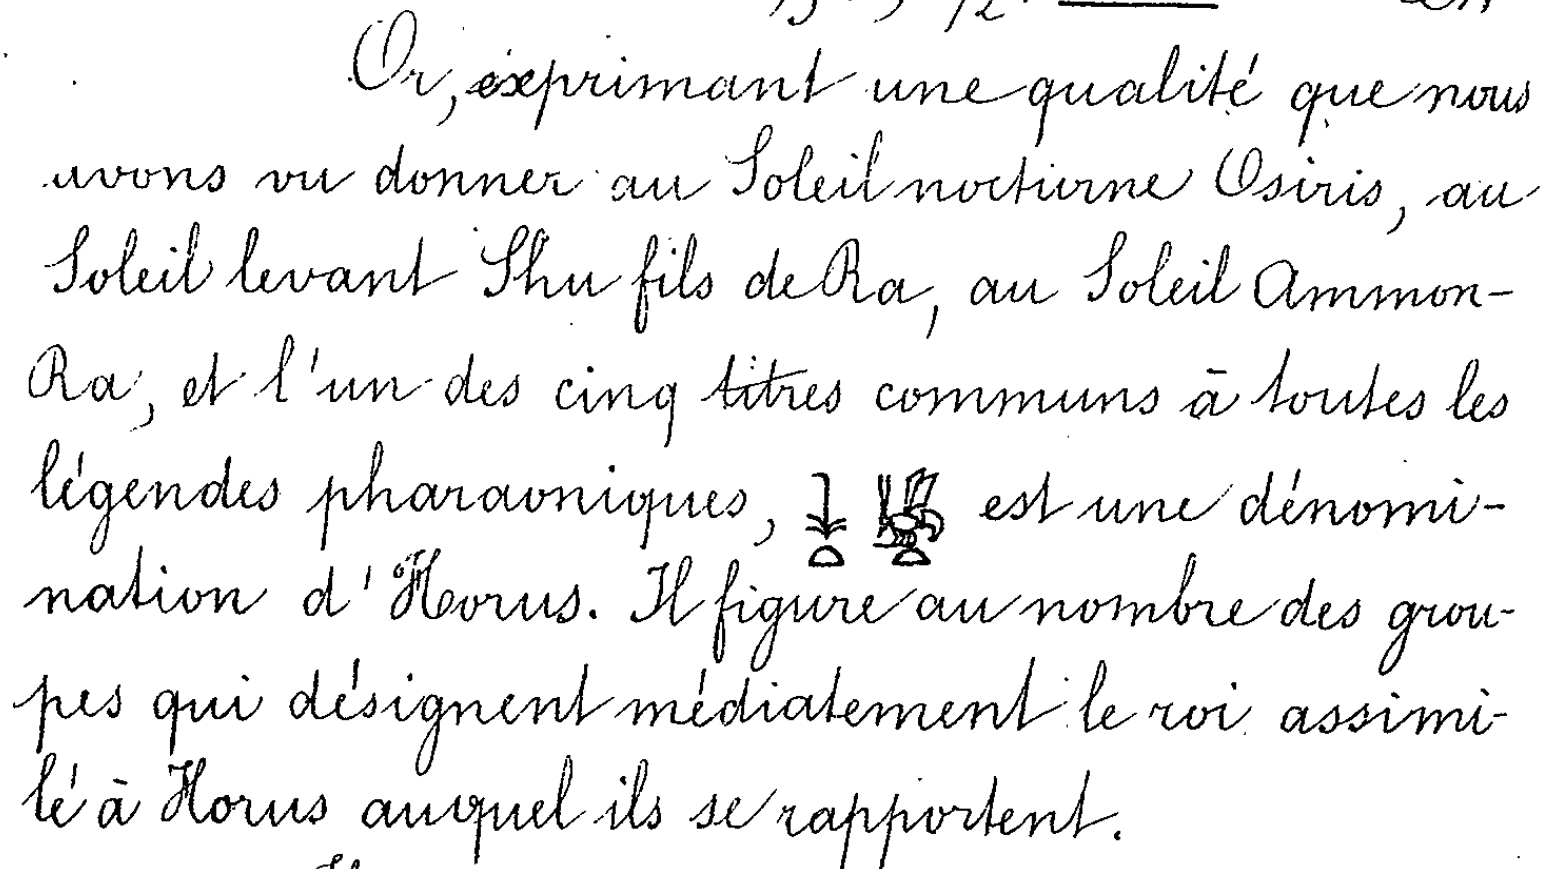 Or, exprimant une qualité que nous
avons vu donner au Soleil nocturne Osiris, au
Soleil levant Shu fils de Ra, au Soleil Ammon-
Ra, et l'un des cinq titres communs à toutes les
légendes pharaoniques, est une dénomi-
nation d'Horus. Il figure au nombre des grou-
pes qui désignent médiatement le roi assimi-
lé à Horus auquel ils se rapportent.